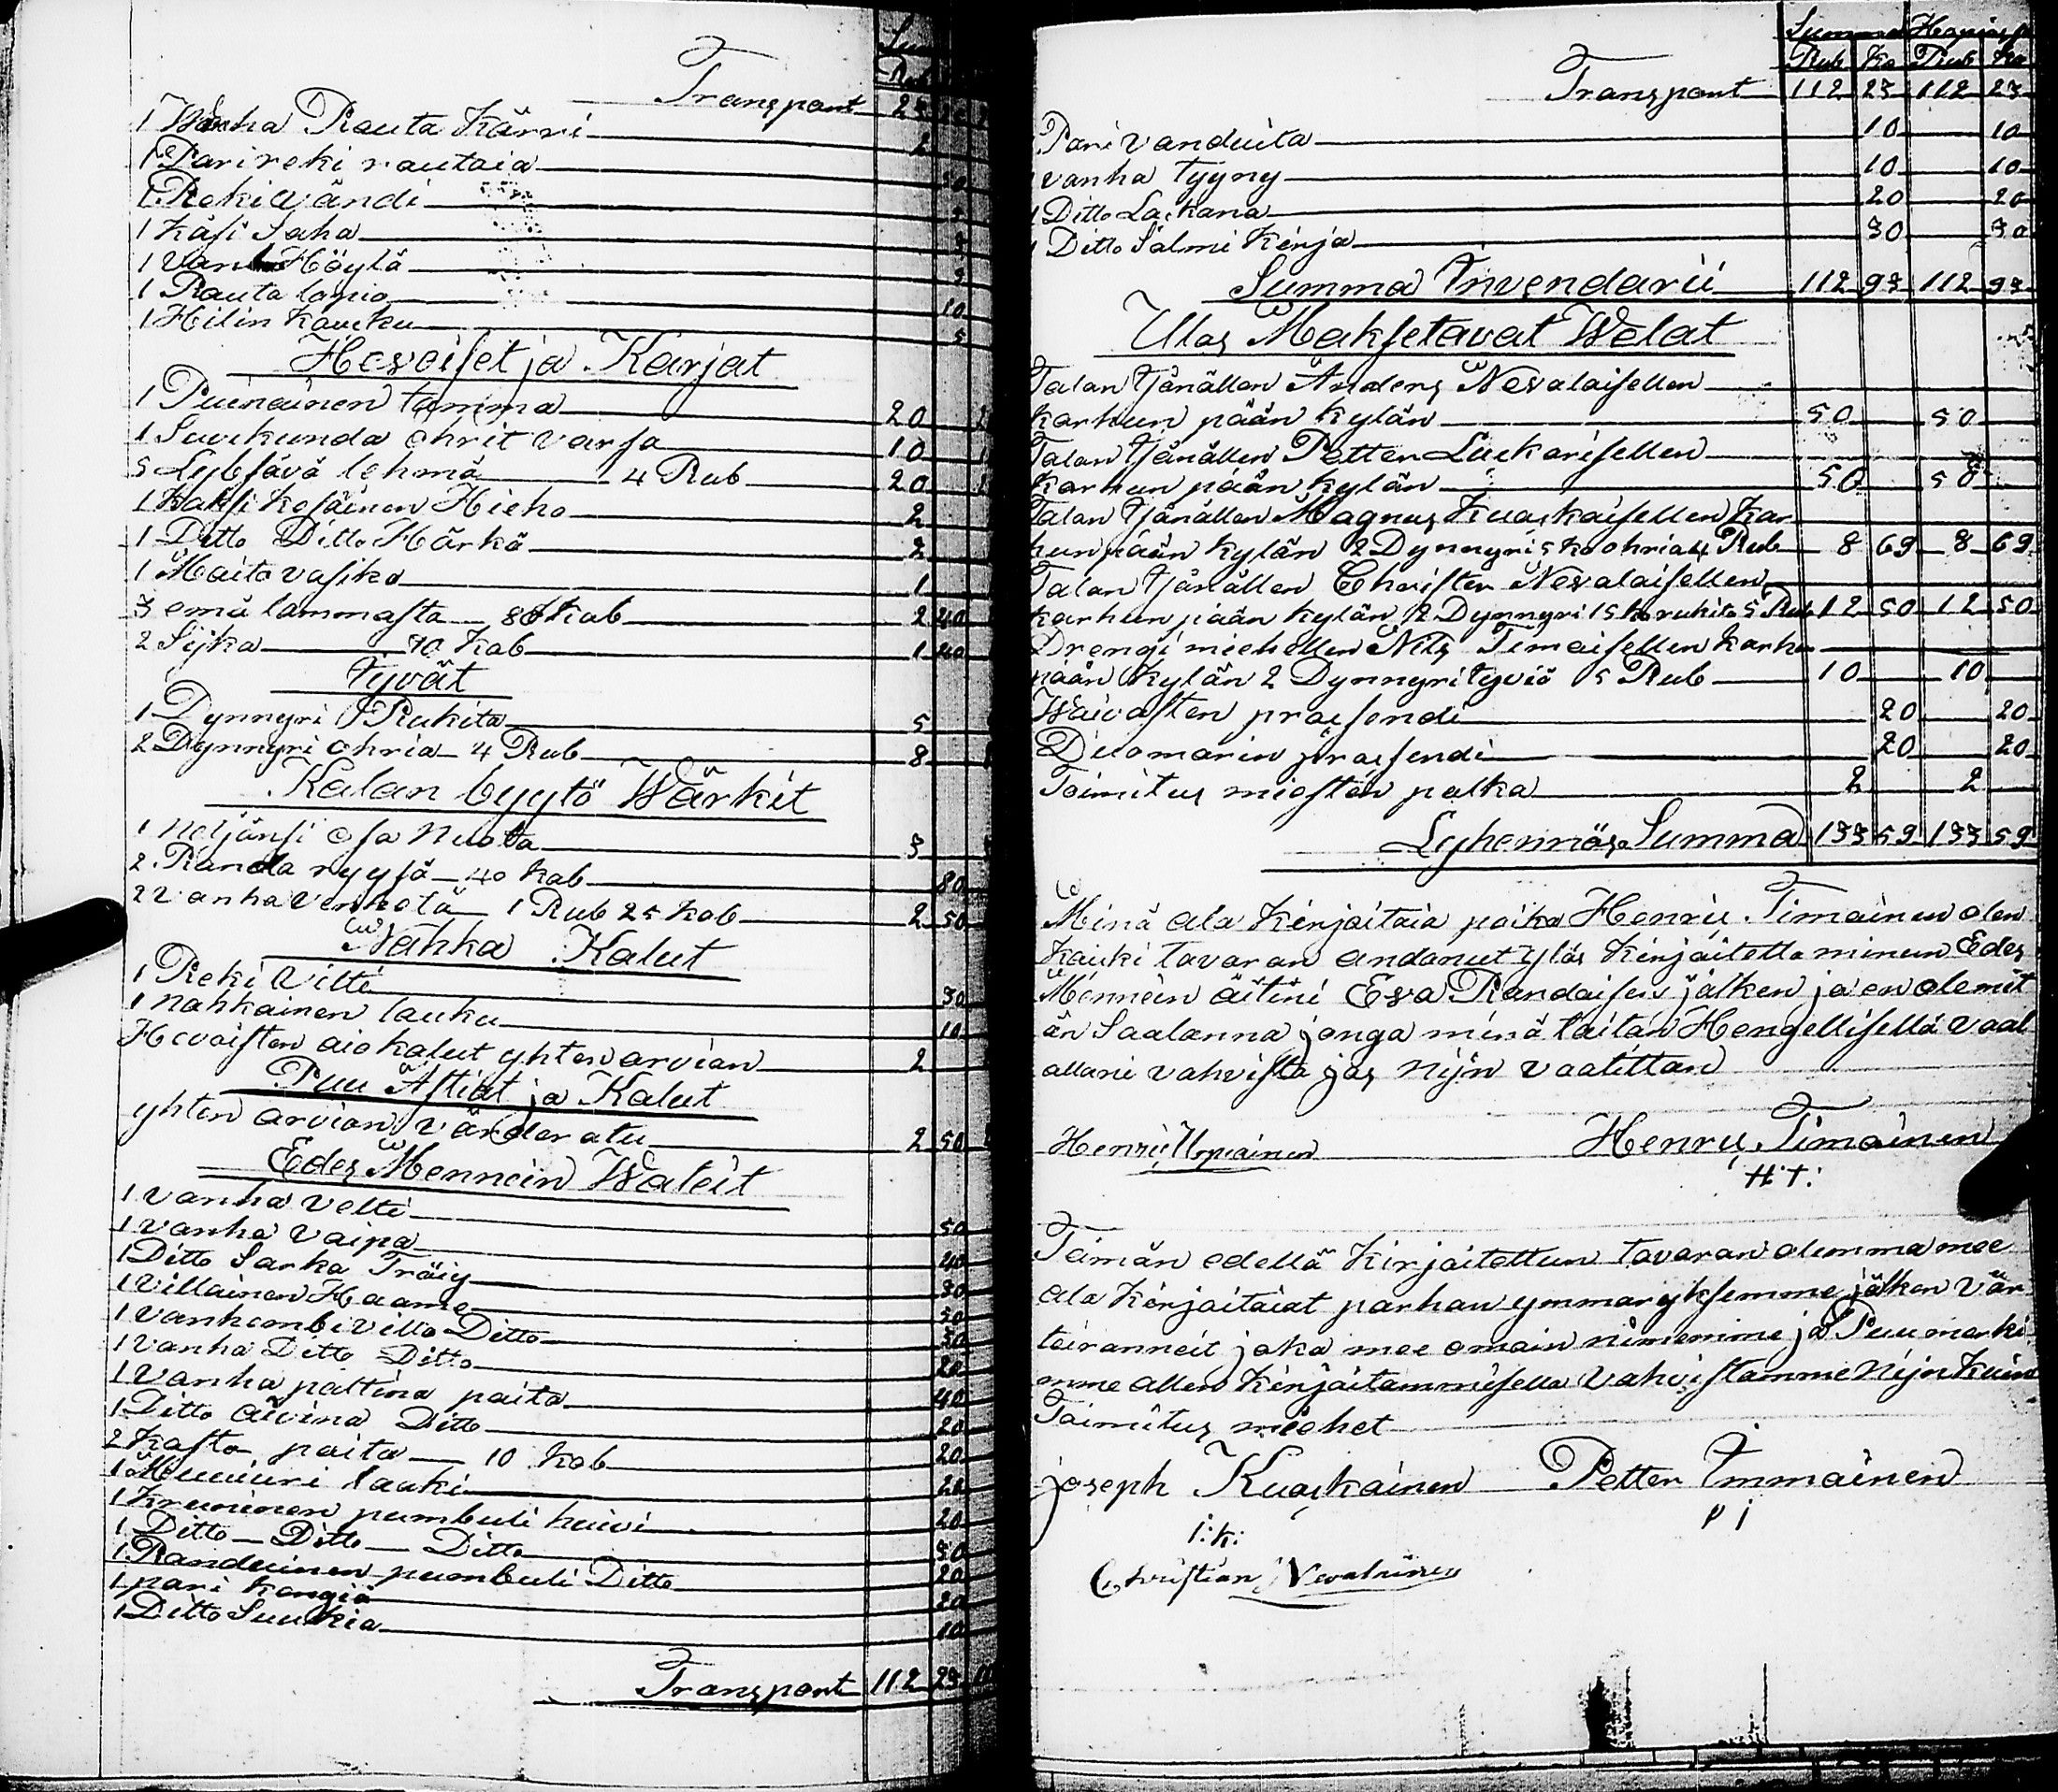 Transport
1 Wanha Rauta Kärri 2
1 Parireki rautaia 50
1 Rekivändi
1 Käsi Saha
1 Vanha Höylä
1 Rauta lapio 10
1 Hilin Koucku 5
Hevoiset ja Karjat
1 Puinainen tamma 20
1 Suvikunda ohrit varsa 10
5 Lybsävä lehmä 4 Rub 20
1 Kaksi Kesäinen Hieho 2
1 Ditto Ditto Härkä 2
1 Maito vasika 1
3 emä lammasta 80 Kob 2 40
2 Sijka 70 Kob 1 40
Jyvät
1 Dynnyri Rukita 5
2 Dynnyri ohria 4 Rub 8
Kalan byytö Wärkit
1 neljänsi osa Nuotta 3
2 Randa ryysä 40 Kob 80
2 Vanha Venhetä 1 Rub 25 Kob 2 50
Nahka Kalut
1 Reki Vilti 30
1 nahkainen lauku 10
Hevoisten aiokalut yhten arvian 2
Puu Astiat ja Kalut
yhten arvian värderatu 2 50
Edes Mennein Wateit
1 vanha velti 50
1 vanha vaipa 40
1 Ditto Sarka Tröiy 30
1 villainen Haame 50
1 vanhembi villa Ditto 30
1 vanha Ditto Ditto 20
1 vanha paltina paita 40
1 Ditto aivina Ditto 20
2 Kasto paita 10 Kob 20
1 Muuuri lacki
1 Kruninen pumbuli huivi 20
1 Ditto Ditto Ditto 30
1 Randuinen pumbuli Ditto 20
1 pari kengiä 20
1 Ditto Suukia 10
Transport 112 23
Rub Ko Rub Ko
Transport 112 23 112 23
Pari vanduita 10 10
vanha tyyny 10 10
1 Ditto Lackana 20 20
1 Ditto Salmi Kirja 30 30
Summa Invendarii 112 93 112 93
Ulos Maksetavat Welat
Talan Isänällen Anders Nevalaisellen
Karhun pään kylän 50 50
Talan Isänällen Petter Luckarisellen
Karhun pään kylän 50 50
Talan Isänällen Magnus Kuoskaisellen Kar
hun pään kylän 2 Dynnyri 5 ko ohria 4 Rub 8 69 8 69
Talan Isänällen Christer Nevalaisellen
Karhun pään kylän 2 Dynnyri 15 ko rukita 5 Rub 12 50 12 50
Drengi miehellen Nils Timaisellen Karhu
pään Kylän 2 Dynnyri jyviä 5 Rub 10 10
Waivasten praesendi 20 20
Duomarin praesendi 20 20
Toimitus miesten palka 2 2
Lyhennös Summa 133 59 133 59
Minä ala Kirjoitaia poika Henric Timainen olen
Kaicki tavaran andanut ylös Kirjoitetta minun Edes
Mennein äitini Eva Randaisen jälken ja en ole mit
än Saalanna jonga minä taitan Hengellisellä vaal
allani vahvista jos nijn vaatittan
Henric Uopiainen Henric Timainen
H:T:
Teimän edellä Kirjoitettun tavaran olemma mee
ala Kirjoitaiat parhan ymmaryksemme jälken vär
teiranneit joka mee omain nimiemme ja Puumarki
mme allen Kirjoitammisella vahvistamme Nijn Kuin
Toimitus miehet
joseph Kuoskainen Petter Immainen
I:K: P I
Christian Nevalainen